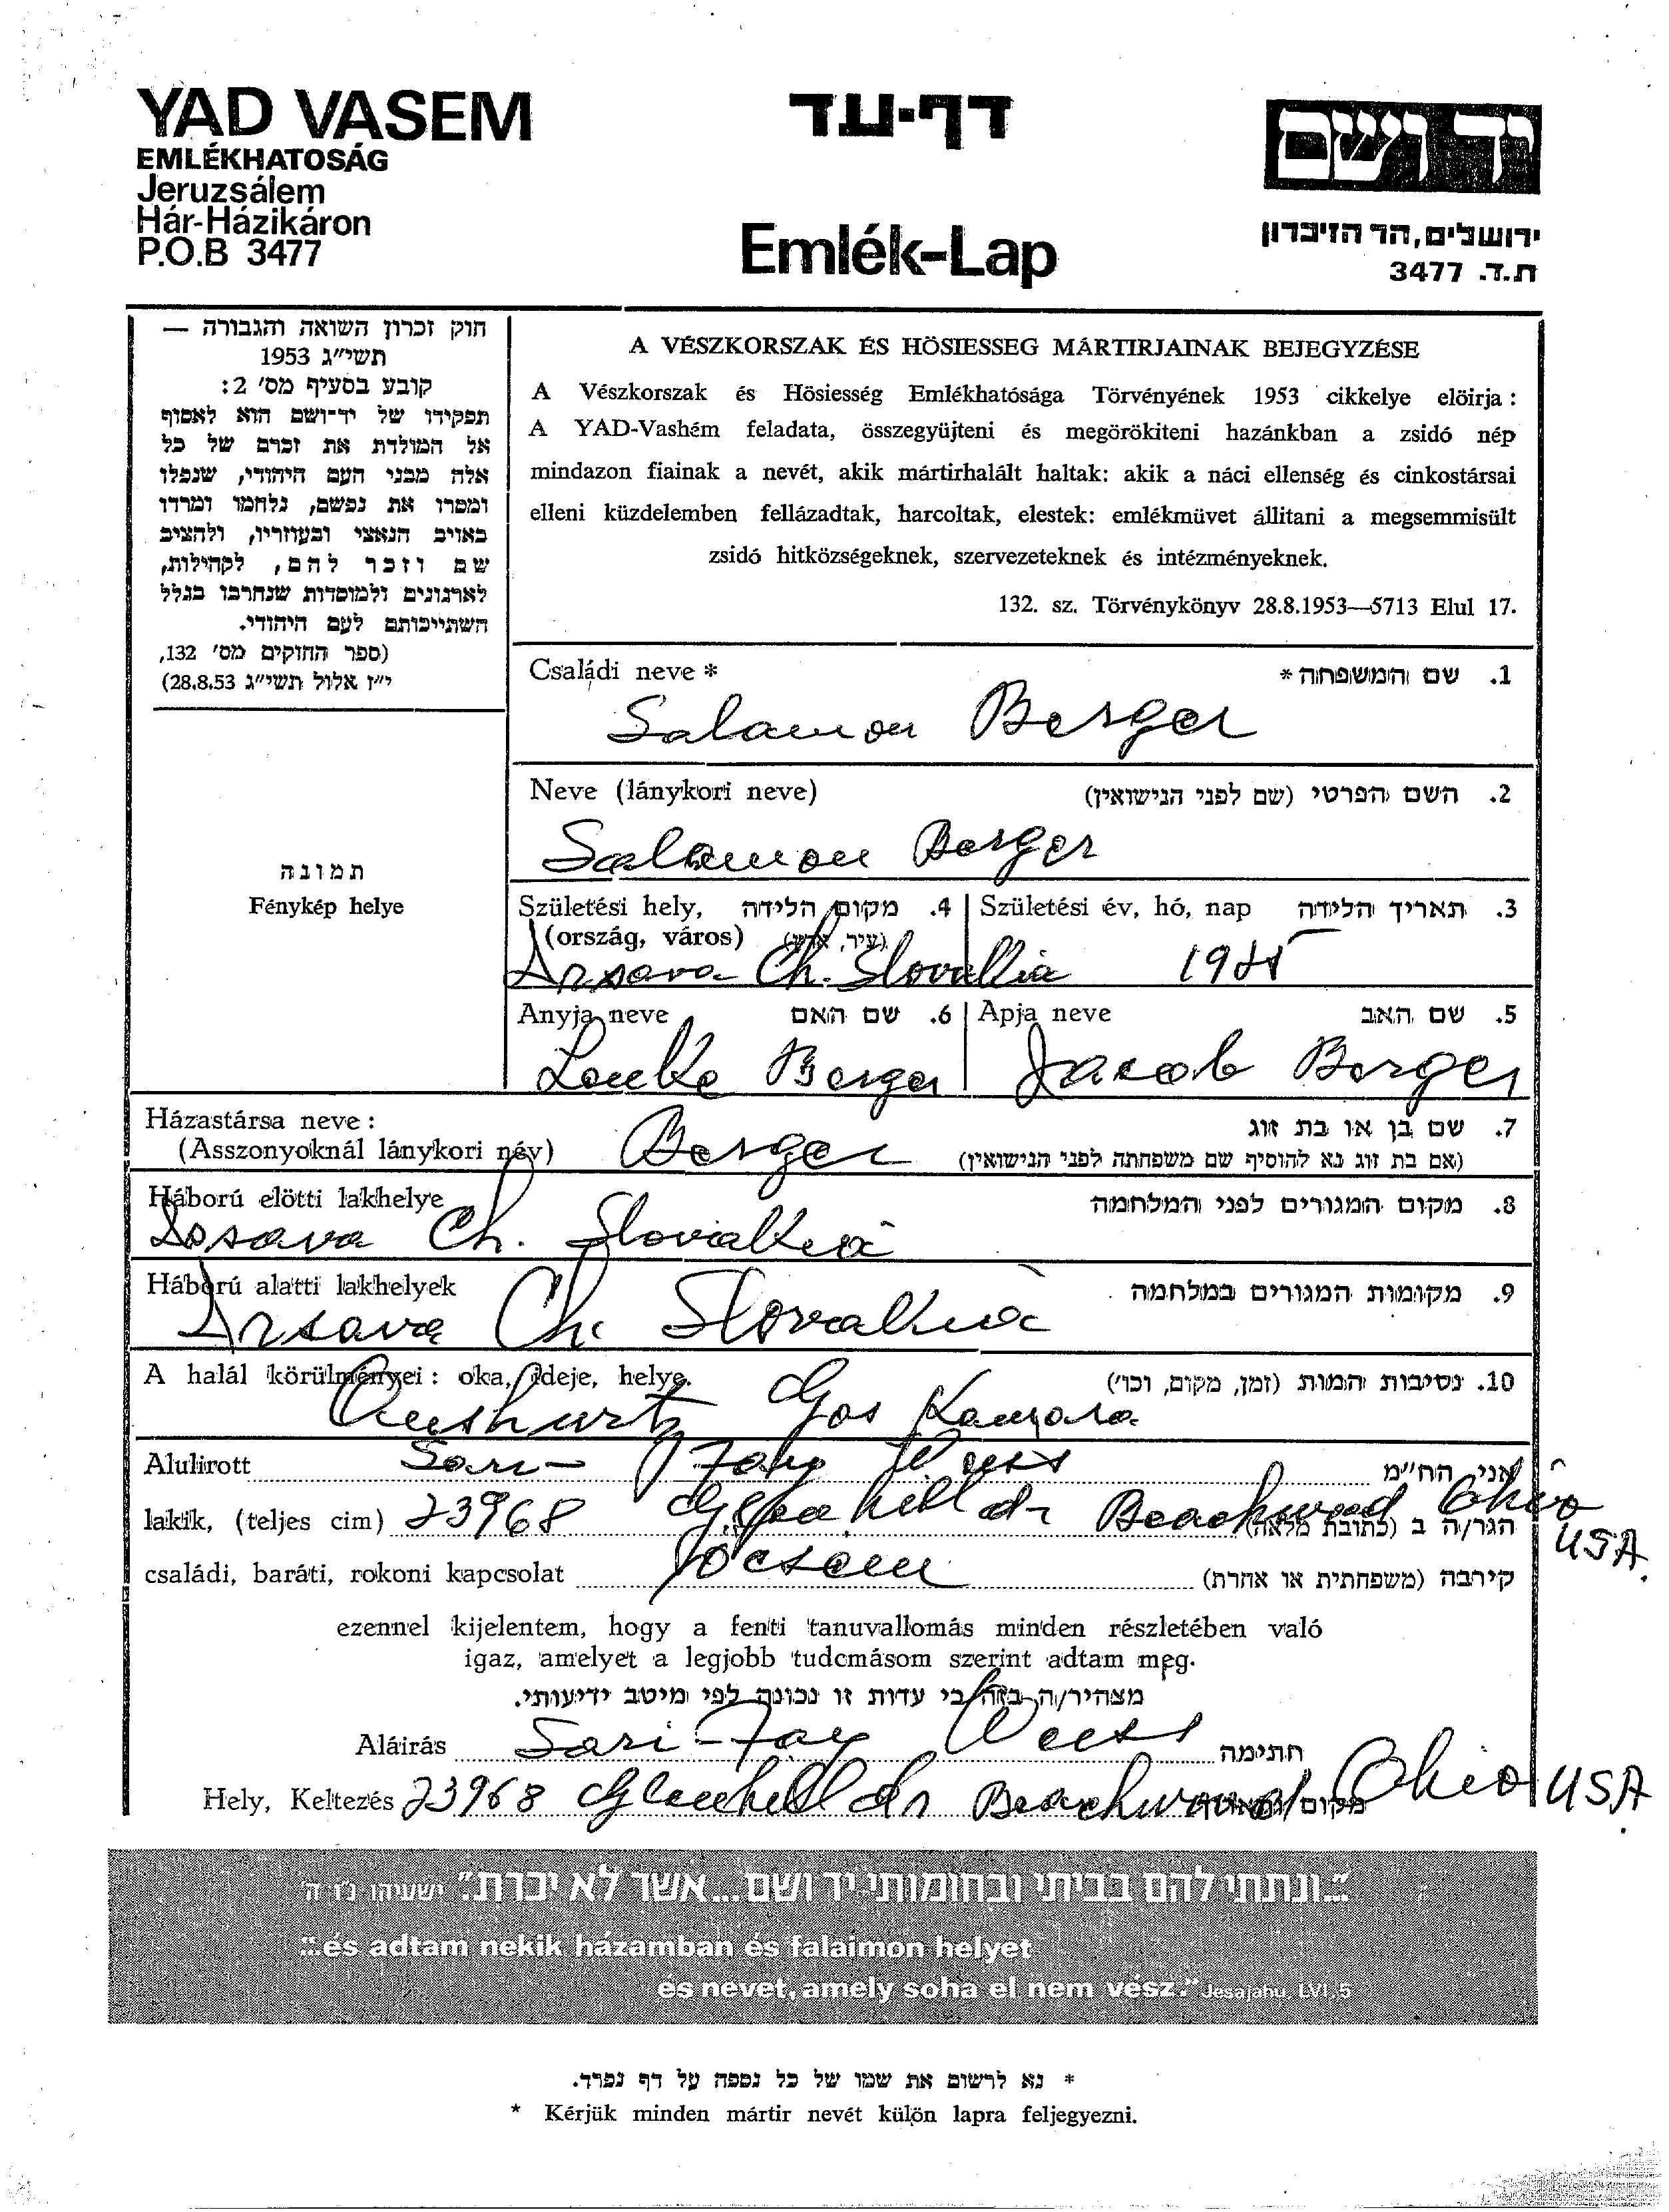 YAD VASEM
EMLÉKHATOSÁG
Jeruzsálem
Hár-Házikáron
P.O.B 3477
דף-עד
Emlék-Lap
יד ושם
ירושלים, הר הזיכרון
ת.ד. 3477
חוק זכרון השואה והגבורה —
תשי״ג 1953
קובע בסעיף מס׳ 2:
תפקידו של יד-ושם הוא לאסוף
אל המולדת את זכרם של כל
אלה מבני העם היהודי, שנפלו
ומסרו את נפשם, נלחמו ומרדו
באויב הנאצי ובעוזריו, ולהציב
שם וזכר להם, לקהילות,
לארגונים ולמוסדות שנחרבו בגלל
השתייכותם לעם היהודי.
(ספר החוקים מס׳ 132,
י״ז אלול תשי״ג 28.8.53)
A VÉSZKORSZAK ÉS HÖSIESSEG MÁRTIRJAINAK BEJEGYZÉSE
A Vészkorszak és Hösiesség Emlékhatósága Törvényének 1953 cikkelye elöirja :
A YAD-Vashém feladata, összegyüjteni és megörökiteni hazánkban a zsidó nép
mindazon fiainak a nevét, akik mártirhalált haltak: akik a náci ellenség és cinkostársai
elleni küzdelemben fellázadtak, harcoltak, elestek: emlékmüvet állitani a megsemmisült
zsidó hitközségeknek, szervezeteknek és intézményeknek.
132. sz. Törvénykönyv 28.8.1953—5713 Elul 17.
Családi neve * 1. שם המשפחה *
Salamon Berger
Neve (lánykori neve) 2. השם הפרטי (שם לפני הנישואין)
Salamon Berger
תמונה
Fénykép helye
Születési hely, 4. מקום הלידה
(ország, város) (עיר, ארץ)
Arsava Ch. Slovakia
Születési év, hó, nap 3. תאריך הלידה
Anyja neve 6. שם האם
Lenke Berger
Apja neve 5. שם האב
Jacob Berger
Házastársa neve : 7. שם בן או בת זוג
(Asszonyoknál lánykori név) Berger (אם בת זוג נא להוסיף שם משפחתה לפני הנישואין)
Háború elötti lakhelye 8. מקום המגורים לפני המלחמה
Irsava Ch. Slovakia
Háború alatti lakhelyek 9. מקומות המגורים במלחמה
Arsava Ch. Slovakia
A halál körülményei : oka, ideje, helye. 10. נסיבות המות (זמן, מקום, וכו׳)
Aushwitz Gas Kamara
Alulirott Sari-Fay Weiss אני, הח״מ
lakik, (teljes cim) 23968 Glenhill dr Beachwood Ohio הגר/ה ב (כתובת מלאה)
USA.
családi, baráti, rokoni kapcsolat öcsem קירבה (משפחתית או אחרת)
ezennel kijelentem, hogy a fenti tanuvallomás minden részletében való
igaz, amelyet a legjobb tudcmásom szerint adtam meg.
מצהיר/ה בזה כי עדות זו נכונה לפי מיטב ידיעותי.
Aláirás Sari-Fay Weiss חתימה
Hely, Keltezés 23968 Glenhill dr Beachwood Ohio USA
"...ונתתי להם בביתי ובחומותי יד ושם...אשר לא יכרת." ישעיהו נ״ו ה׳
"...és adtam nekik házamban és falaimon helyet
és nevet, amely soha el nem vész." Jesajahu, LVI,5
* נא לרשום את שמו של כל נספה על דף נפרד.
* Kérjük minden mártir nevét külön lapra feljegyezni.